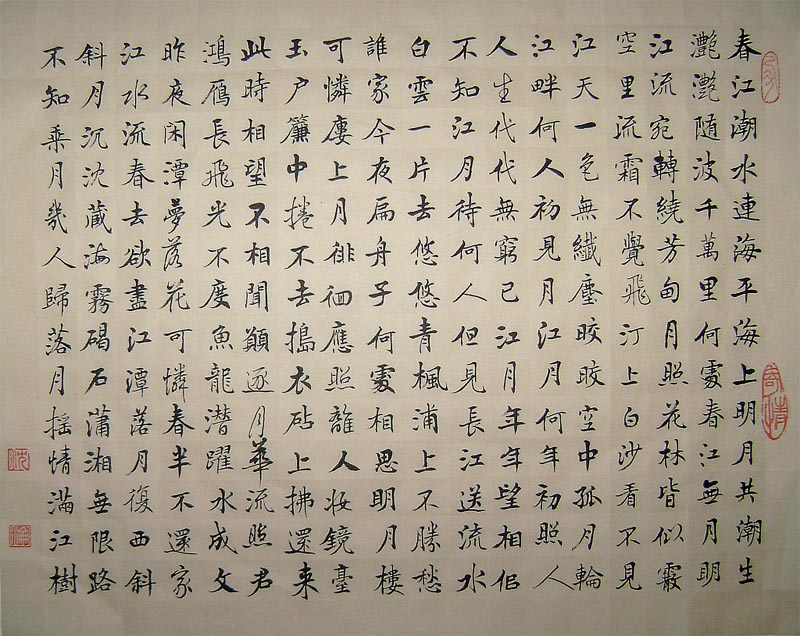 春江潮水連海平海上明月共潮生
灔灔隨波千萬里何處春江無月明
江流宛轉繞芳甸月照花林皆似霰
空里流霜不覺飛汀上白沙看不見
江天一色無纖塵皎皎空中孤月輪
江畔何人初見月江月何年初照人
人生代代無窮已江月年年望相似
不知江月待何人但見長江送流水
白雲一片去悠悠青楓浦上不勝愁
誰家今夜扁舟子何處相思明月樓
可憐樓上月徘徊應照離人妝鏡臺
玉户簾中捲不去搗衣砧上拂還来
此時相望不相聞願逐月華流照君
鴻雁長飛光不度魚龍潛躍水成文
昨夜閑潭夢落花可憐春半不還家
江水流春去欲盡江潭落月復西斜
斜月沉沈藏海霧碣石瀟湘無限路
不知乘月幾人歸落月摇情滿江樹